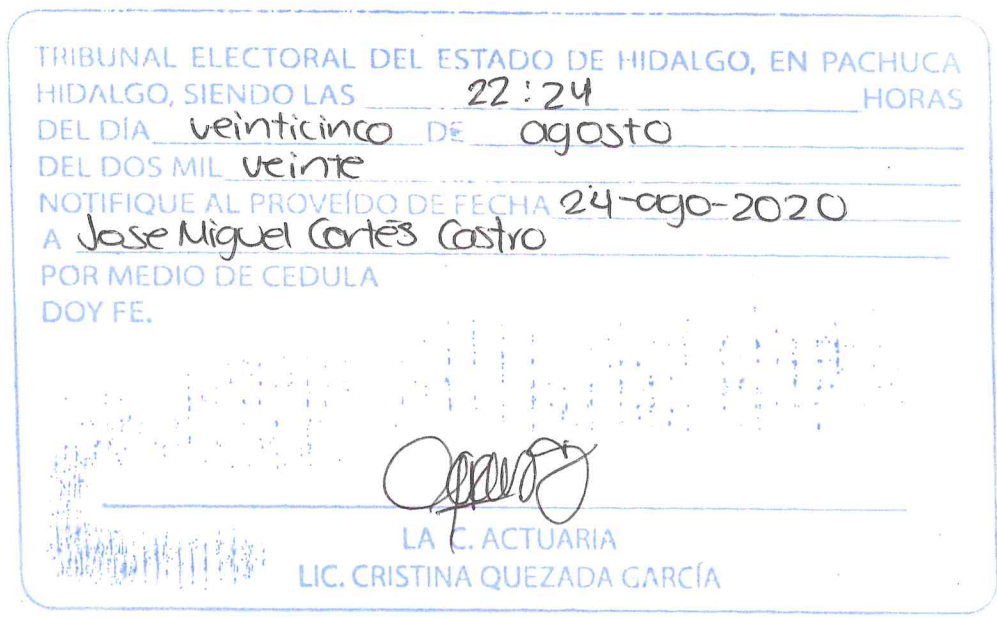 TRIBUNAL ELECTORAL DEL ESTADO DE HIDALGO, EN PACHUCA
HIDALGO, SIENDO LAS 22:24 HORAS
DEL DÍA veinticinco DE agosto
DEL DOS MIL veinte
NOTIFIQUE AL PROVEÍDO DE FECHA 24-ago-2020
A Jose Miguel Cortés Castro
POR MEDIO DE CEDULA
DOY FE.
LA C. ACTUARIA
LIC. CRISTINA QUEZADA GARCÍA